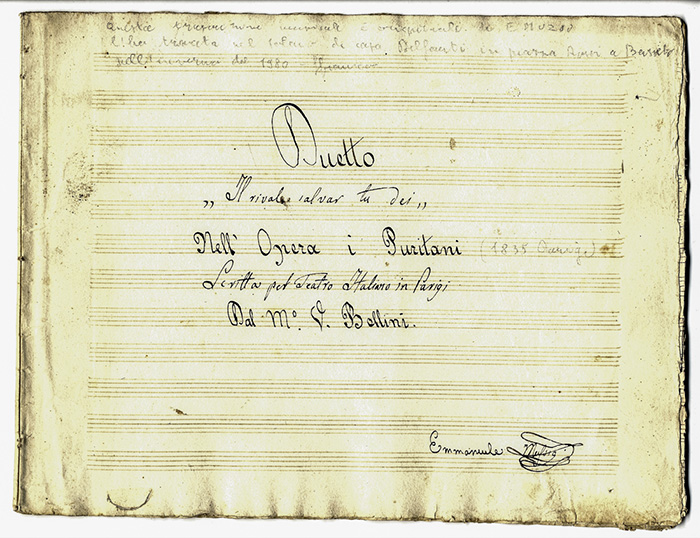 questa trascrizione musicale è di E Muzio
L'ho trovata nel di casa Belforti in piazza Rossi a
nell'inverno del 1980
Duetto
„ Il rival salvar tu dei „
Nell' Opera i Puritani (1835 Parigi)
Scritta pel Teatro Italiano in Parigi
Dal M.o V. Bellini.
Emmanuele